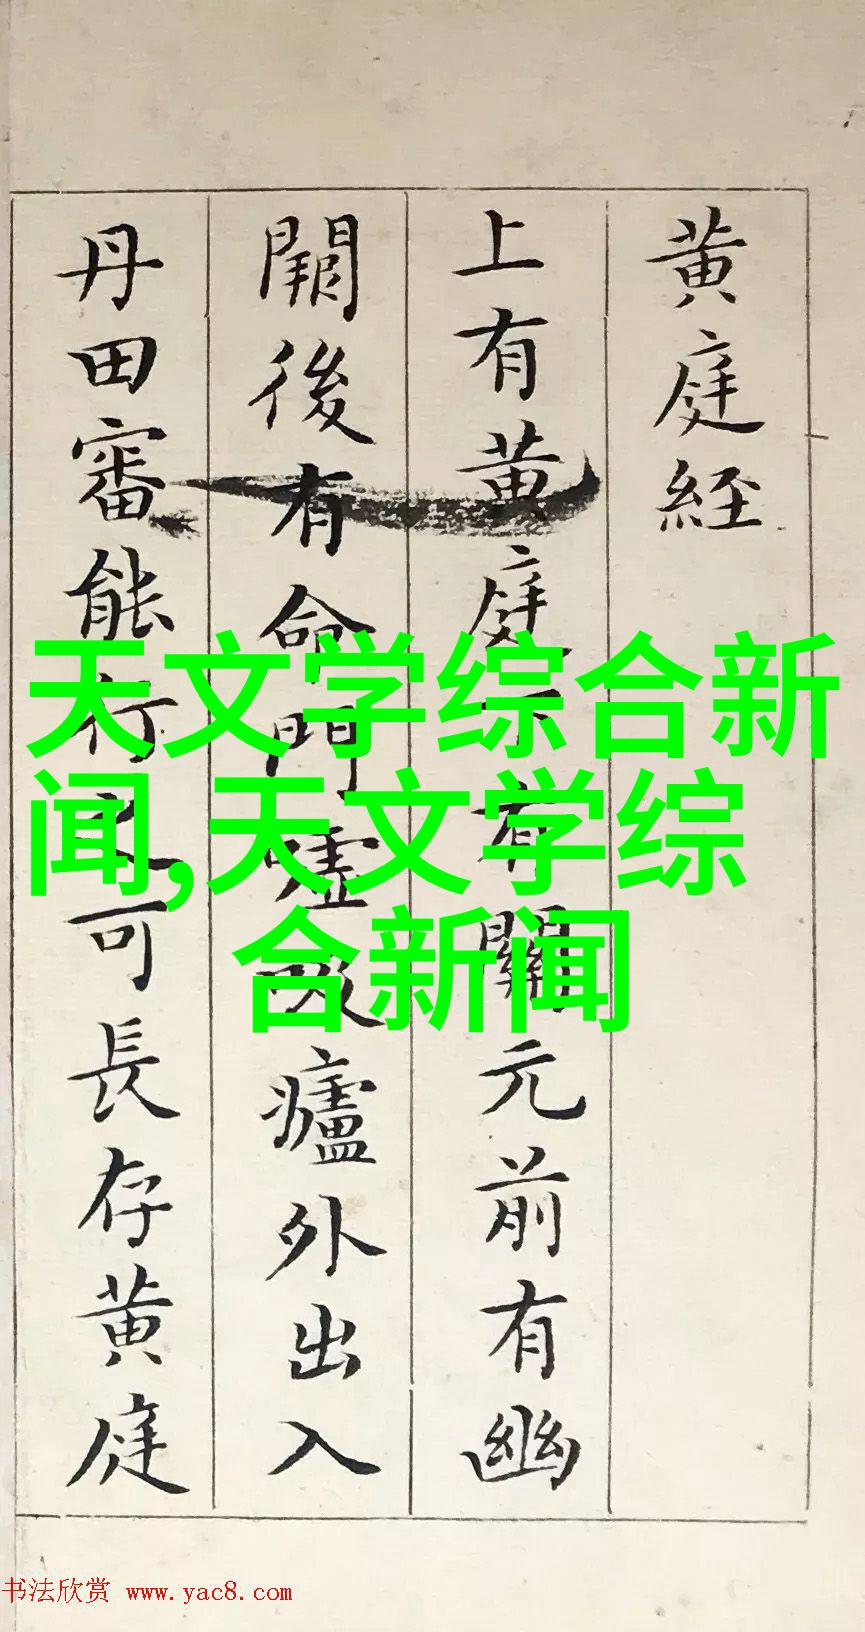 黄庭経
上有黄庭下有關元前有幽
闕後有命門嘘吸廬外出入
丹田審能行之可長存黄庭
天文学综合新
闻,天文学综
合新闻
书法欣赏 www.yac8.com